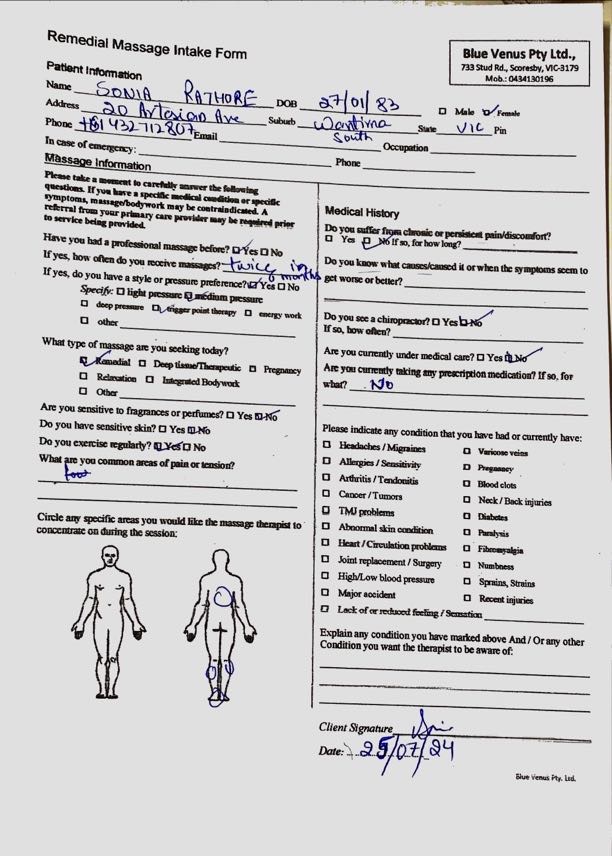 Remedial Massage Intake Form
Blue Venus Pty Ltd.,
733 Stud Rd., Scoresby, VIC-3179
Mob.: 0434130196
Patient Information
Name SONIA RATHORE DOB 27/01/83 ☐ Male ☑ Female
Address 20 Artesian Ave Suburb Wantirna South State VIC Pin
Phone Email Occupation
In case of emergency: Phone
Massage Information
Please take a moment to carefully answer the following
questions. If you have a specific medical condition or specific
symptoms, massage/bodywork may be contraindicated. A
referral from your primary care provider may be required prior
to service being provided.
Have you had a professional massage before? ☑ Yes ☐ No
If yes, how often do you receive massages? twice in
6 months
If yes, do you have a style or pressure preference? ☑ Yes ☐ No
Specify: ☐ light pressure ☑ medium pressure
☐ deep pressure ☑ trigger point therapy ☐ energy work
☐ other
What type of massage are you seeking today?
☑ Remedial ☐ Deep tissue/Therapeutic ☐ Pregnancy
☐ Relaxation ☐ Integrated Bodywork
☐ Other
Are you sensitive to fragrances or perfumes? ☐ Yes ☑ No
Do you have sensitive skin? ☐ Yes ☑ No
Do you exercise regularly? ☑ Yes ☐ No
What are you common areas of pain or tension?
foot
Circle any specific areas you would like the massage therapist to
concentrate on during the session:
Medical History
Do you suffer from chronic or persistent pain/discomfort?
☐ Yes ☑ No If so, for how long?
Do you know what causes/caused it or when the symptoms seem to
get worse or better?
Do you see a chiropractor? ☐ Yes ☑ No
If so, how often?
Are you currently under medical care? ☐ Yes ☑ No
Are you currently taking any prescription medication? If so, for
what? NO
Please indicate any condition that you have had or currently have:
☐ Headaches / Migraines ☐ Varicose veins
☐ Allergies / Sensitivity ☐ Pregnancy
☐ Arthritis / Tendonitis ☐ Blood clots
☐ Cancer / Tumors ☐ Neck / Back injuries
☐ TMJ problems ☐ Diabetes
☐ Abnormal skin condition ☐ Paralysis
☐ Heart / Circulation problems ☐ Fibromyalgia
☐ Joint replacement / Surgery ☐ Numbness
☐ High/Low blood pressure ☐ Sprains, Strains
☐ Major accident ☐ Recent injuries
☐ Lack of or reduced feeling / Sensation
Explain any condition you have marked above And / Or any other
Condition you want the therapist to be aware of:
Client Signature
Date: 25/07/24
Blue Venus Pty. Ltd.